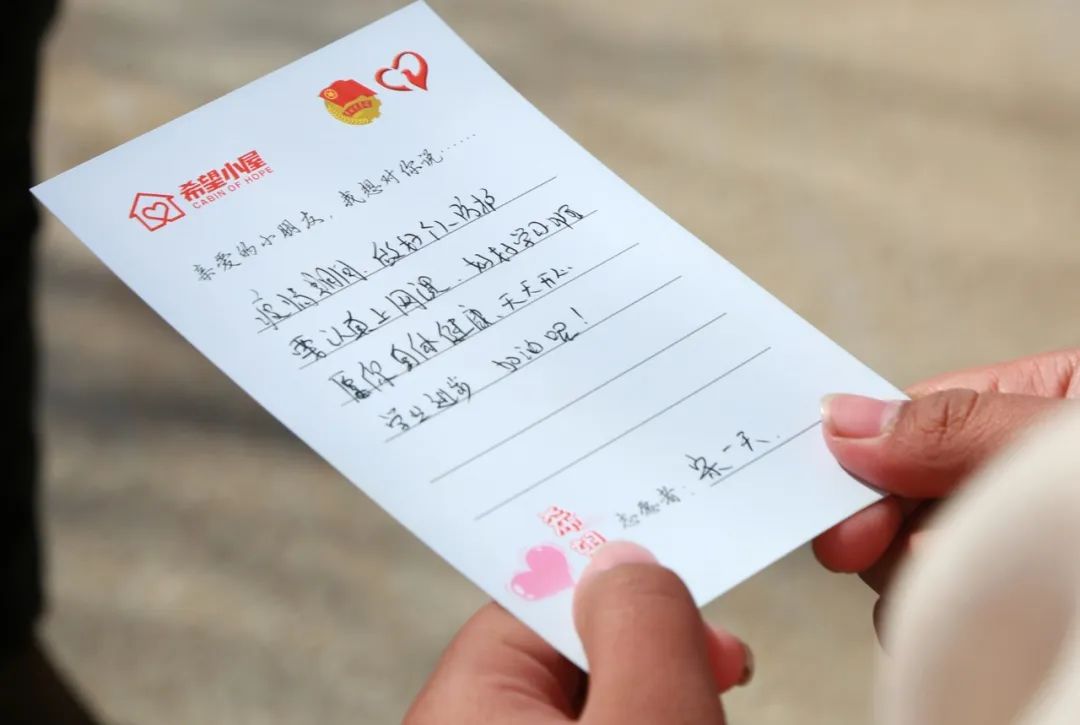 希望小屋
CABIN OF HOPE
亲爱的小朋友，我想对你说……
疫情期间，做好个人防护
需认真上网课，好好学习哦
愿你身体健康、天天开心
学业进步 加油吧！
志愿者：宋一天.
希望